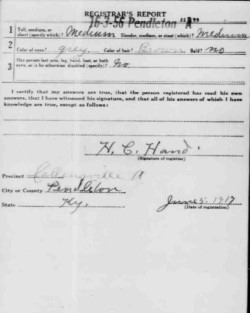 REGISTRAR'S REPORT
16-3-56 Pendleton "A"
1 Tall, medium, or short (specify which)? Medium Slender, medium, or stout (which)? Medium
2 Color of eyes? gray Color of hair? Brown Bald? No
3 Has person lost arm, leg, hand, foot, or both eyes, or is he otherwise disabled (specify)? No
I certify that my answers are true, that the person registered has read his own
answers, that I have witnessed his signature, and that all of his answers of which I
have knowledge are true, except as follows:
H. C. Hand
(Signature of registrar)
Precinct A
City or County Pendleton
State Ky.
June 5. 1917
(Date of registration)